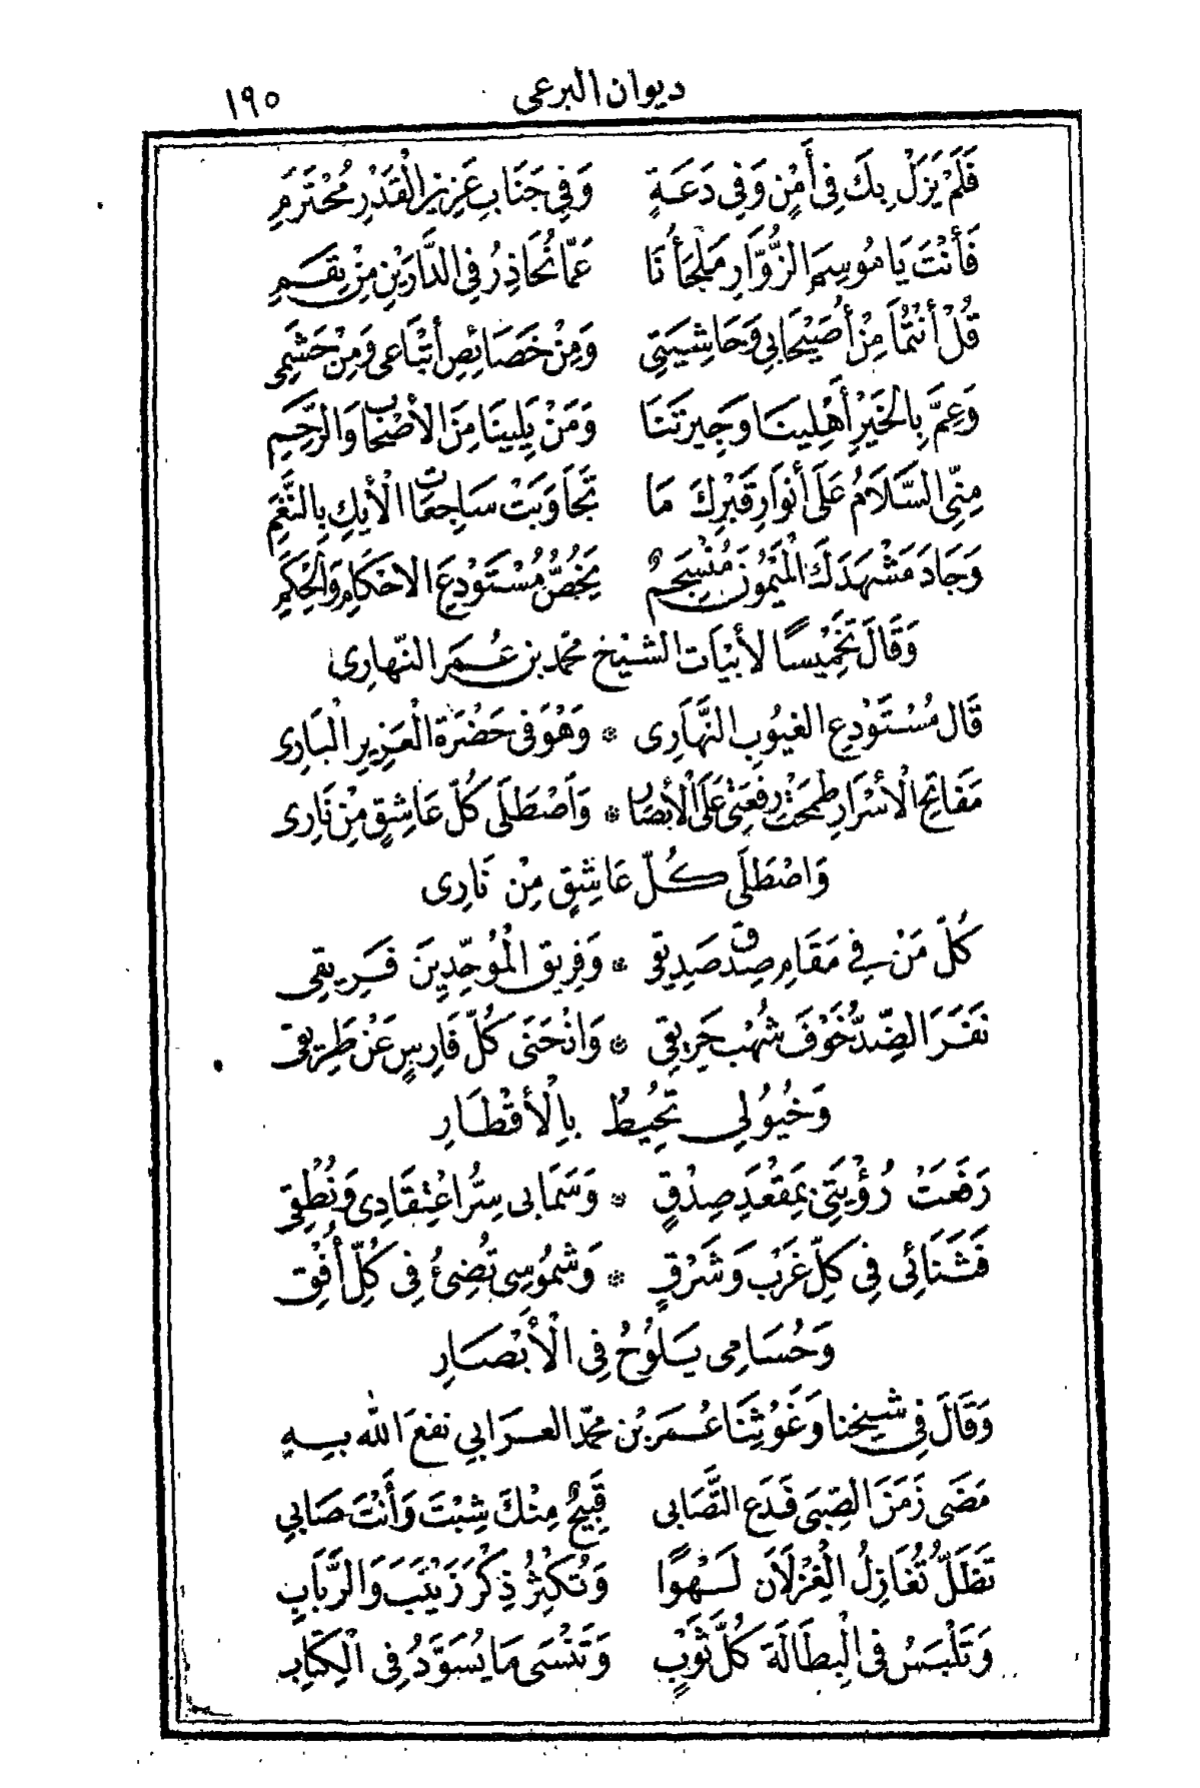 ديوان البرعى ١٩٥
فَلَمْ يَزَلْ بِكَ فِى أَمْنٍ وَفِى دَعَةٍ وَفِى جَنَابِ عَزِيزِ الْقَدْرِ مُحْتَرَمِ
فَأَنْتَ يَا مُوسِمَ الزُّوَّارِ مَلْجَأُنَا عَمَّا نُحَاذِرُ فِى الدَّارَيْنِ مِنْ نِقَمِ
قُلْ أَنْتُمَا مِنْ أُصَيْحَابِى وَحَاشِيَتِى وَمِنْ خَصَائِصِ أَتْبَاعِى وَمِنْ حَشَمِى
وَعِمَّ بِالْخَيْرِ أَهْلِينَا وَجِيرَتَنَا وَمَنْ يَلِينَا مِنَ الأَصْحَابِ وَالرَّحِمِ
مِنِّى السَّلَامُ عَلَى أَنْوَارِ قَبْرِكَ مَا تَجَاوَبَتْ سَاجِعَاتُ الْأَيْكِ بِالنَّغَمِ
وَجَادَ مَشْهَدَكَ الْمَيْمُونَ مُنْسَجِمٌ يَخُصُّ مُسْتَوْدِعَ الاحْكَامِ وَالْحِكَمِ
وَقَالَ تَخْمِيسًا لأَبْيَات الشيْخ محمد بن عُمَر النّهارِى
قَال مُسْتَوْدِع الغيُوبِ النَّهَارِى * وَهْوَ فِى حَضْرَة الْعَزِيزِ الْبَارِى
مَفَاتِح الْأَسْرَارِ طمحَتْ رِفْعَتِى عَلَى الْأَبْصَار * وَاصْطَلَى كُلّ عَاشِقٍ مِنْ نَارِى
وَاصْطَلَى كُلّ عَاشِقٍ مِنْ نَارِى
كُلّ مَنْ فِى مَقَامِ صِدْق صَدِيقِى * وَفَرِيق الْمُوَحِّدِينَ فَرِيقِى
نَفَرَ الضِّدُّ خَوْفَ شُهْب حَرِيقِى * وَانْحَنَى كُلّ فَارِسٍ عَنْ طَرِيقِى
وَخُيُولِى تَحُيطُ بِالْأَقْطَارِ
رَفَعَتْ رُؤْيَتِى بِمَقْعَدِ صِدْقٍ * وَسَمَا بى سِرُّ اعْتِقَادِى وَنُطْقِى
فَثَنَائِى فِى كلِّ غَرْب وَشَرْقٍ * وَشُمُوسِى تُضِئُ فِى كُلِّ أُفْقِ
وَحُسَامِى يَلوُحُ فِى الْأَبْصَارِ
وَقَالَ فِى شيخنا وَغَوْثِنَا عُمَر بْن محمّد العرَابي نفعَ الله بِهِ
مَضَى زَمَنَ الصِّبَى فَدَعِ التَّصَابى قَبِيحٌ مِنْكَ شِبْتَ وَأَنْتَ صَابِى
تَظَلُّ تُغَازِلُ الْغِزْلَانَ لَهْوًا وَتُكْثِرُ ذِكْرَ زَيْنَبَ وَالرَّبَابِ
وَتَلْبَسُ فِى الْبِطَالَةِ كُلَّ ثَوْبٍ وَتَنْسَى مَا يُسَوَّدُ فِى الْكِتَابِ